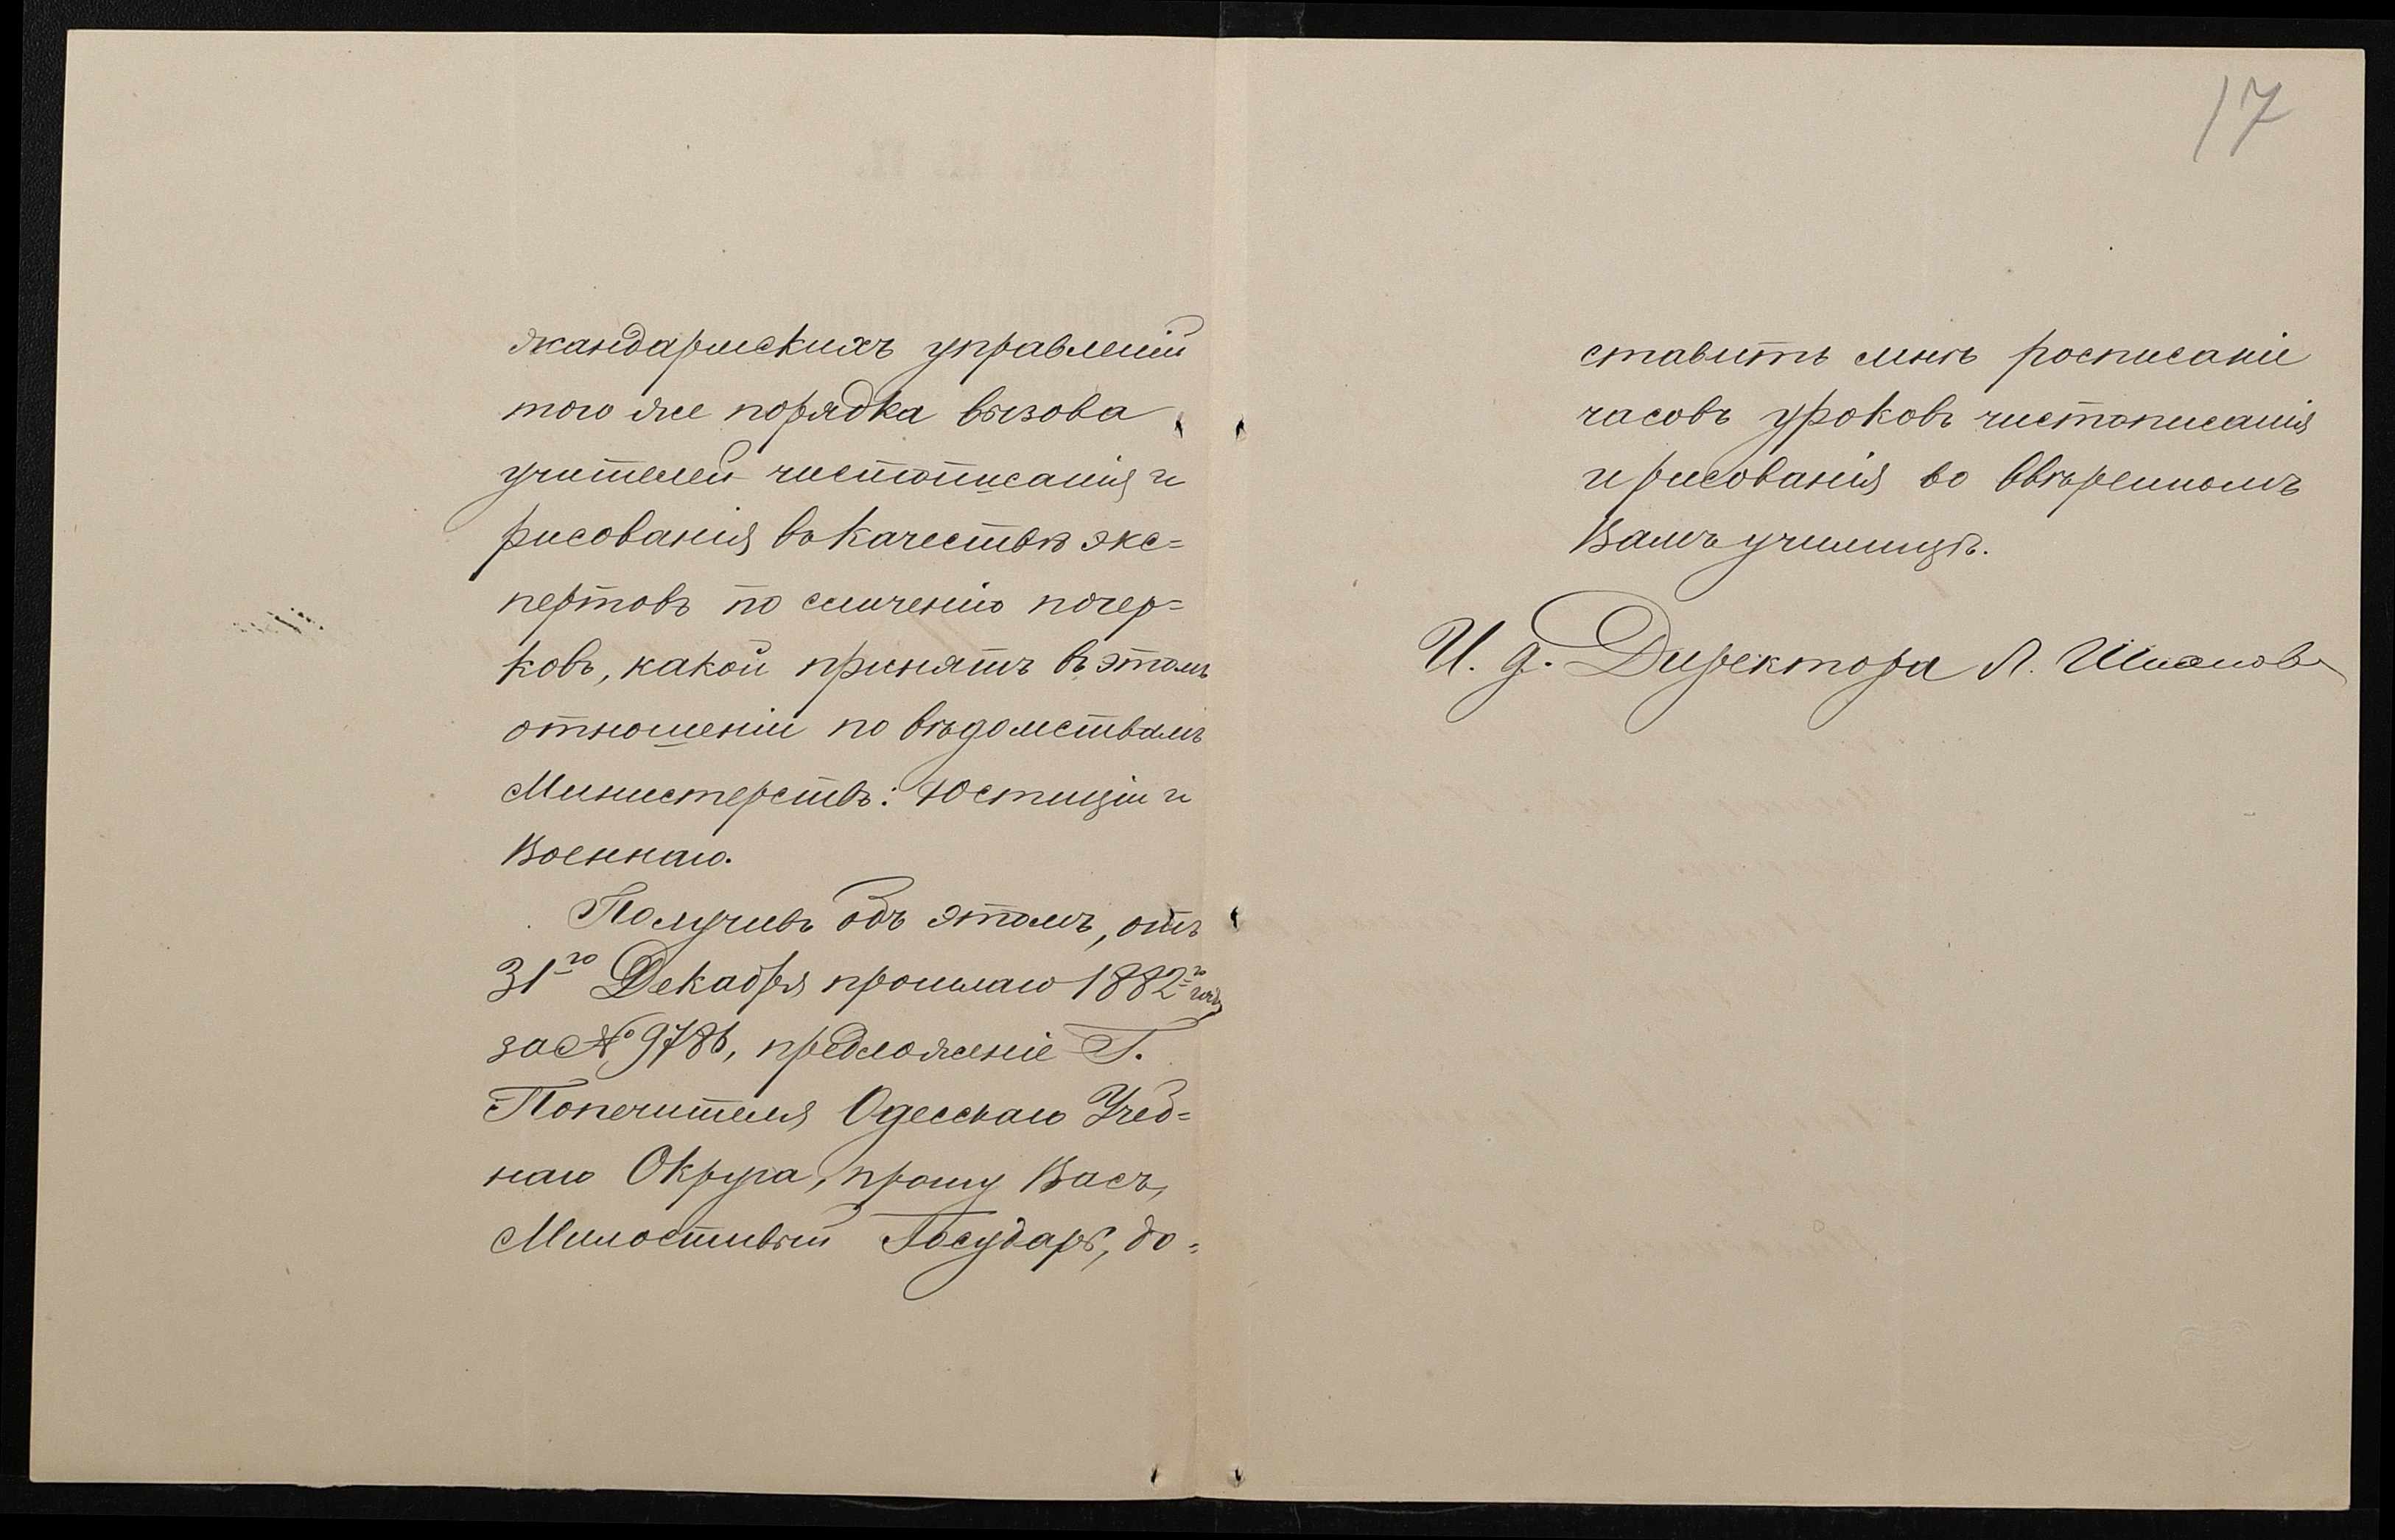 жандармскихъ управленій
того же порядка вызова
учителей чистописанія и
рисованія въ качествѣ экс=
пертовъ по сличенію почер=
ковъ, какой принятъ въ этомъ
отношеніи по вѣдомствамъ
Министерствъ: Юстиціи и
Военнаго.
Получивъ объ этомъ, отъ
31го Декабря прошлаго 1882го года
за № 9786, предложеніе Г.
Попечителя Одесскаго Учеб=
наго Округа, прошу Васъ,
Милостивый Государь, до=
17
ставить мнѣ росписаніе
часовъ уроковъ чистописанія
и рисованія во ввѣренномъ
Вамъ училищѣ.
И. д. Директора А.